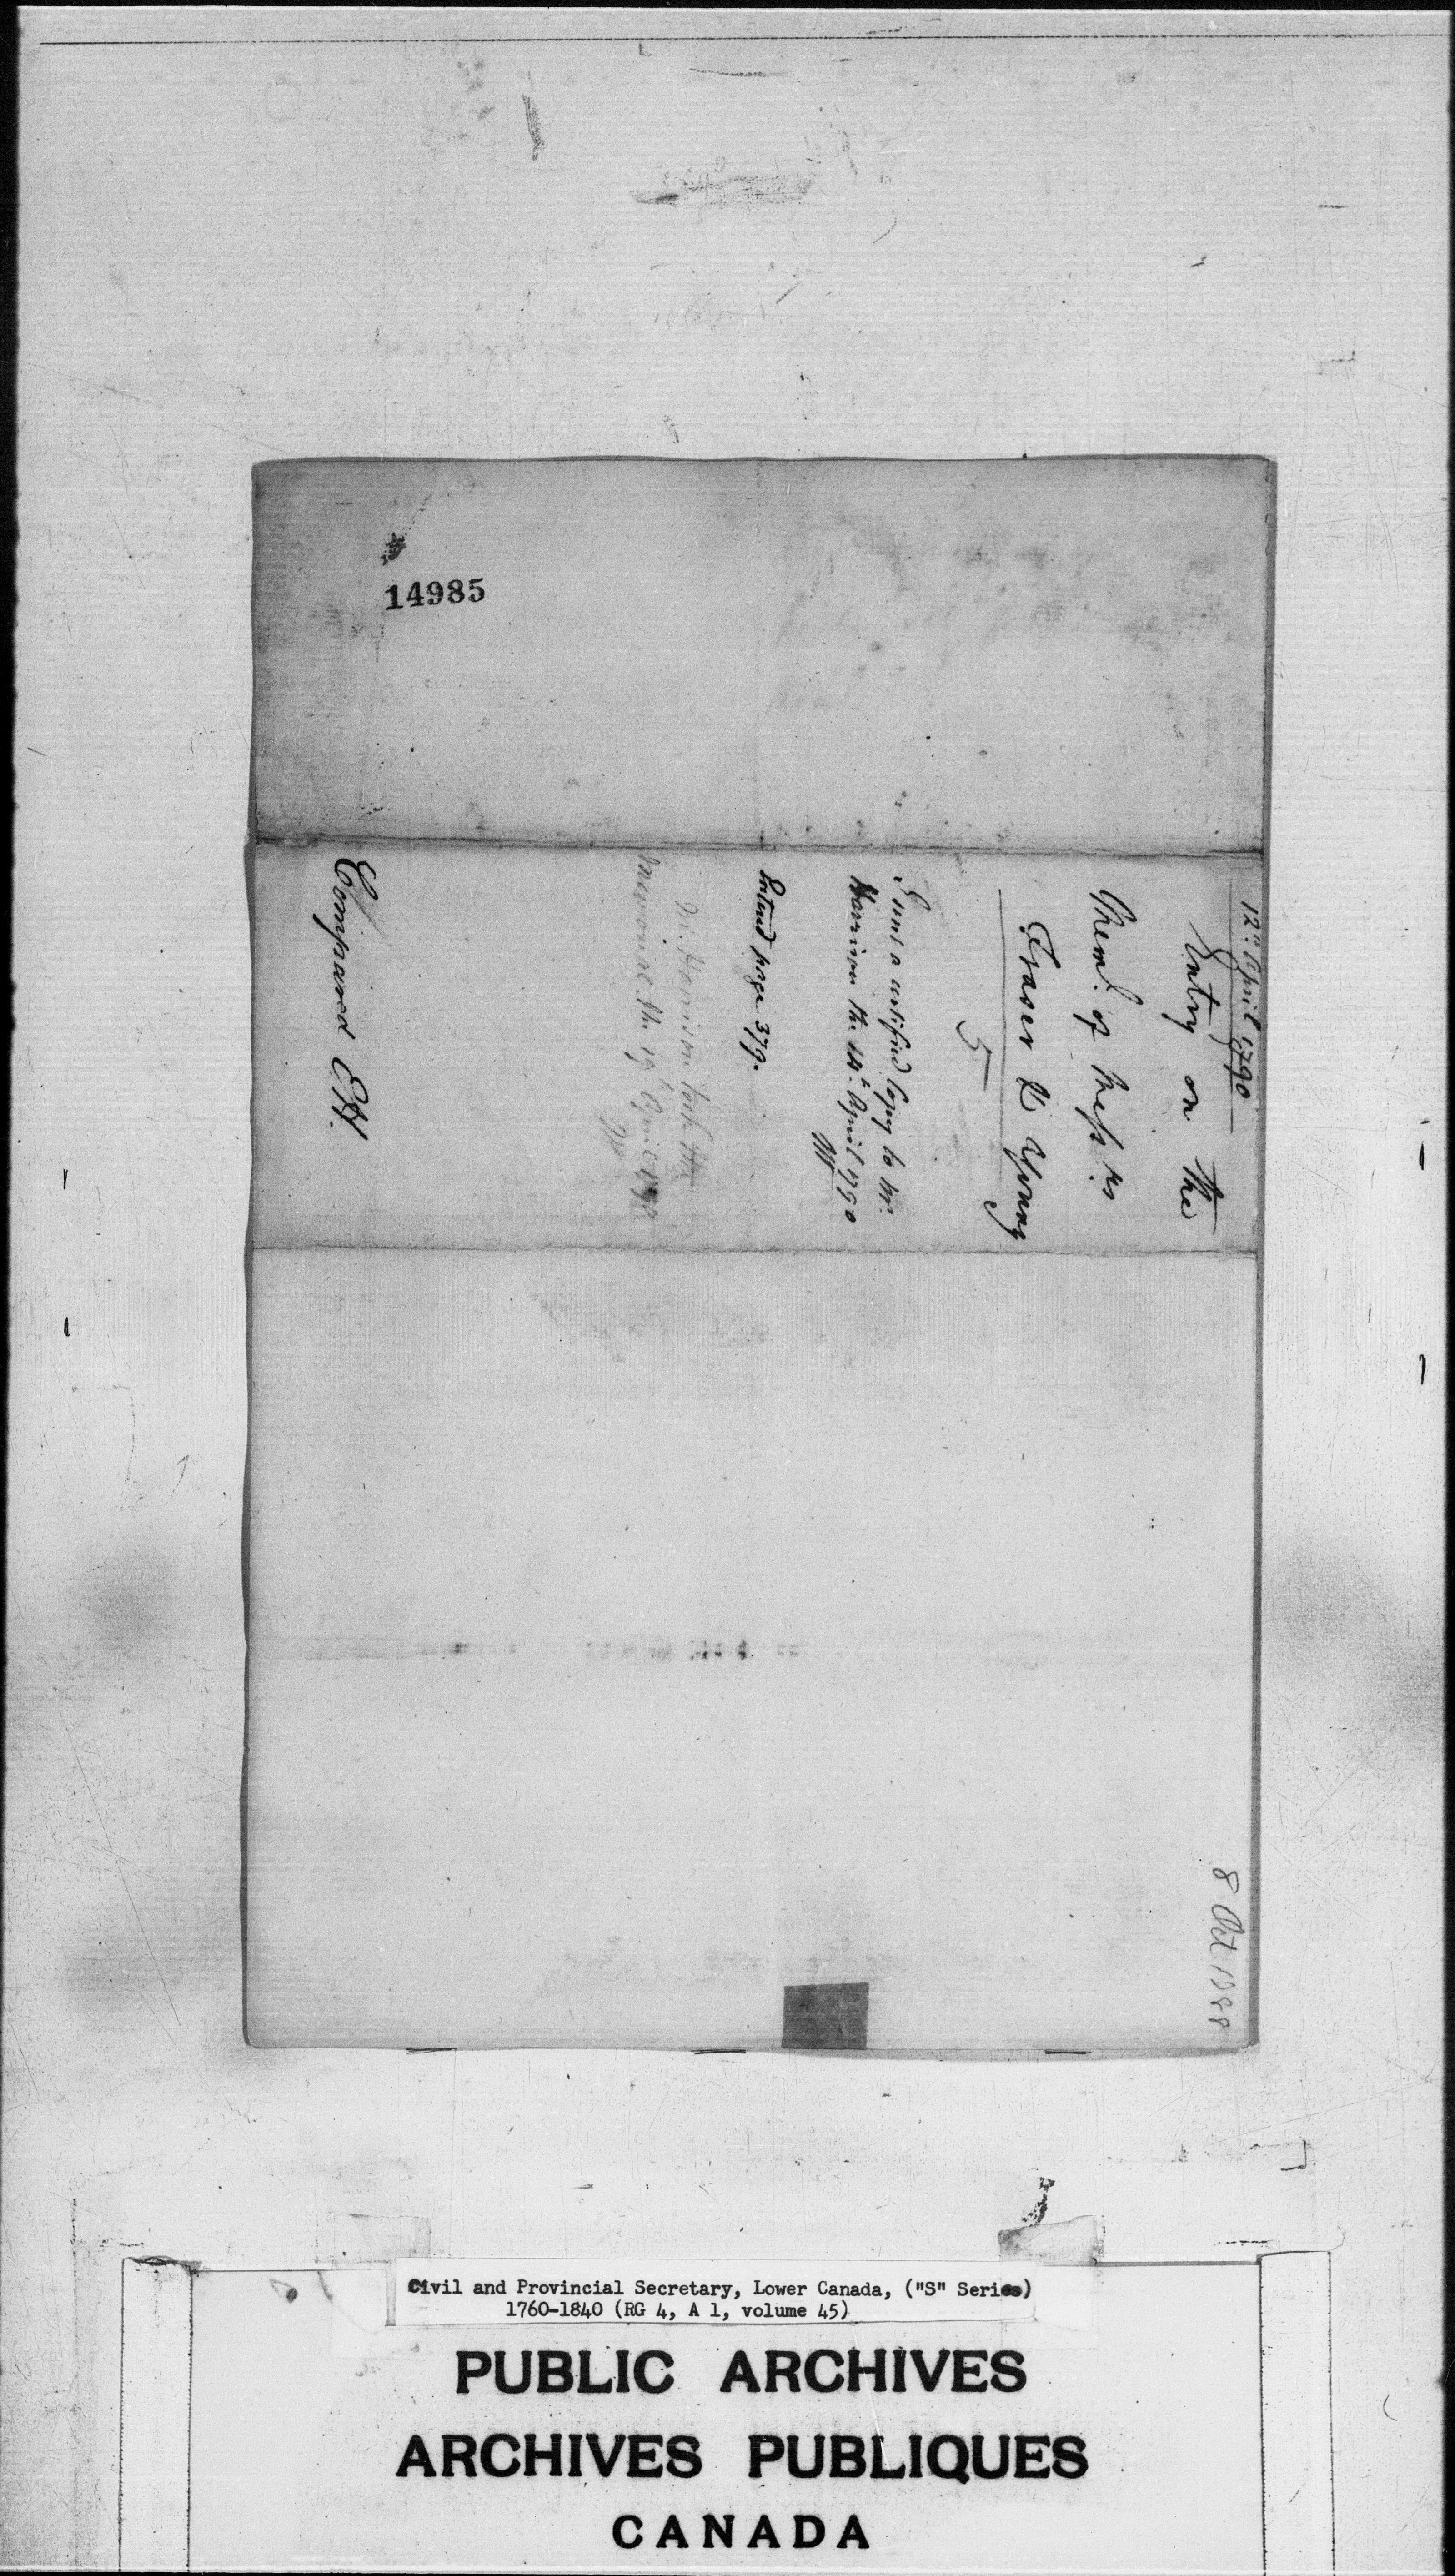 14985
12th. April 1790
Entry on the
Mem.l of Mess.rs
Fraser & Young
5
I sent a certified Copy to Mr.
Harrison the 14th. April 1790
Enterd page 379.
Mr. Harrison took the
memorial the 19th April 1790
Compared EH.
8 Oct 1788
Civil and Provincial Secretary, Lower Canada, ("S" Series)
1760-1840 (RG 4, A 1, volume 45)
PUBLIC ARCHIVES
ARCHIVES PUBLIQUES
CANADA